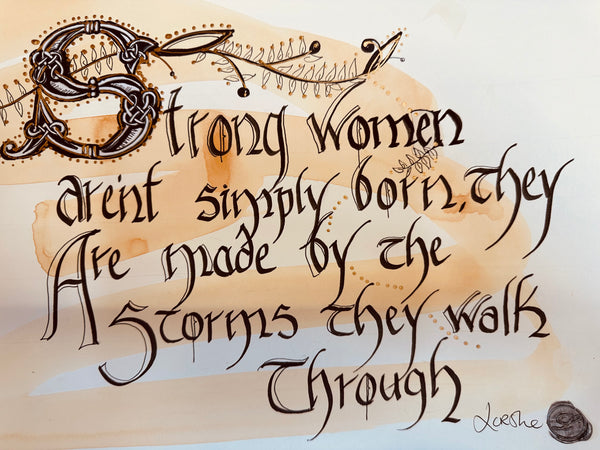 Strong women
arent simply born, they
Are made by the
Storms they walk
Through